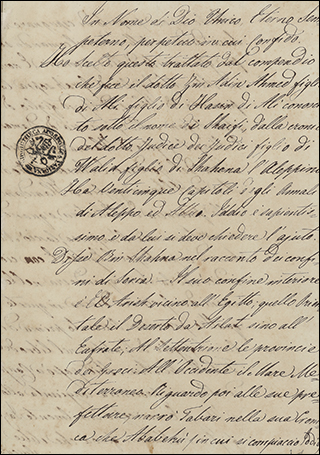 In Nome di Dio Unico, Eterno Sem
piterno, perpetuo in cui confido.
Ho scelto questo trattato dal compendio
che fece il dotto Ahmed figlio
di Ali figlio di Hasan di Ali conosciuto
sotto il nome di dalla cronica
del dotto Judice dei Judici figlio di
Walid figlio di Shahena l'Aleppino
Ha venticinque Capitoli e gli Annali
di Aleppo ed Iddio è sapientis
simo e da lui si deve chiedere l'ajuto.
Disse Bin Shahna nel racconto dei confi
ni di Soria. Il suo confine inferiore
è vicino all'Egitto, quello Orien
tale il Deserto da sino all'
Eufrate, Al Settentrione le provincie
All'Occidente il Mare Me
diterraneo. Riguardo poi alle sue pre
fetture, narrò Tabari nella sua Croni
ca che in cui si compiaccia Dio